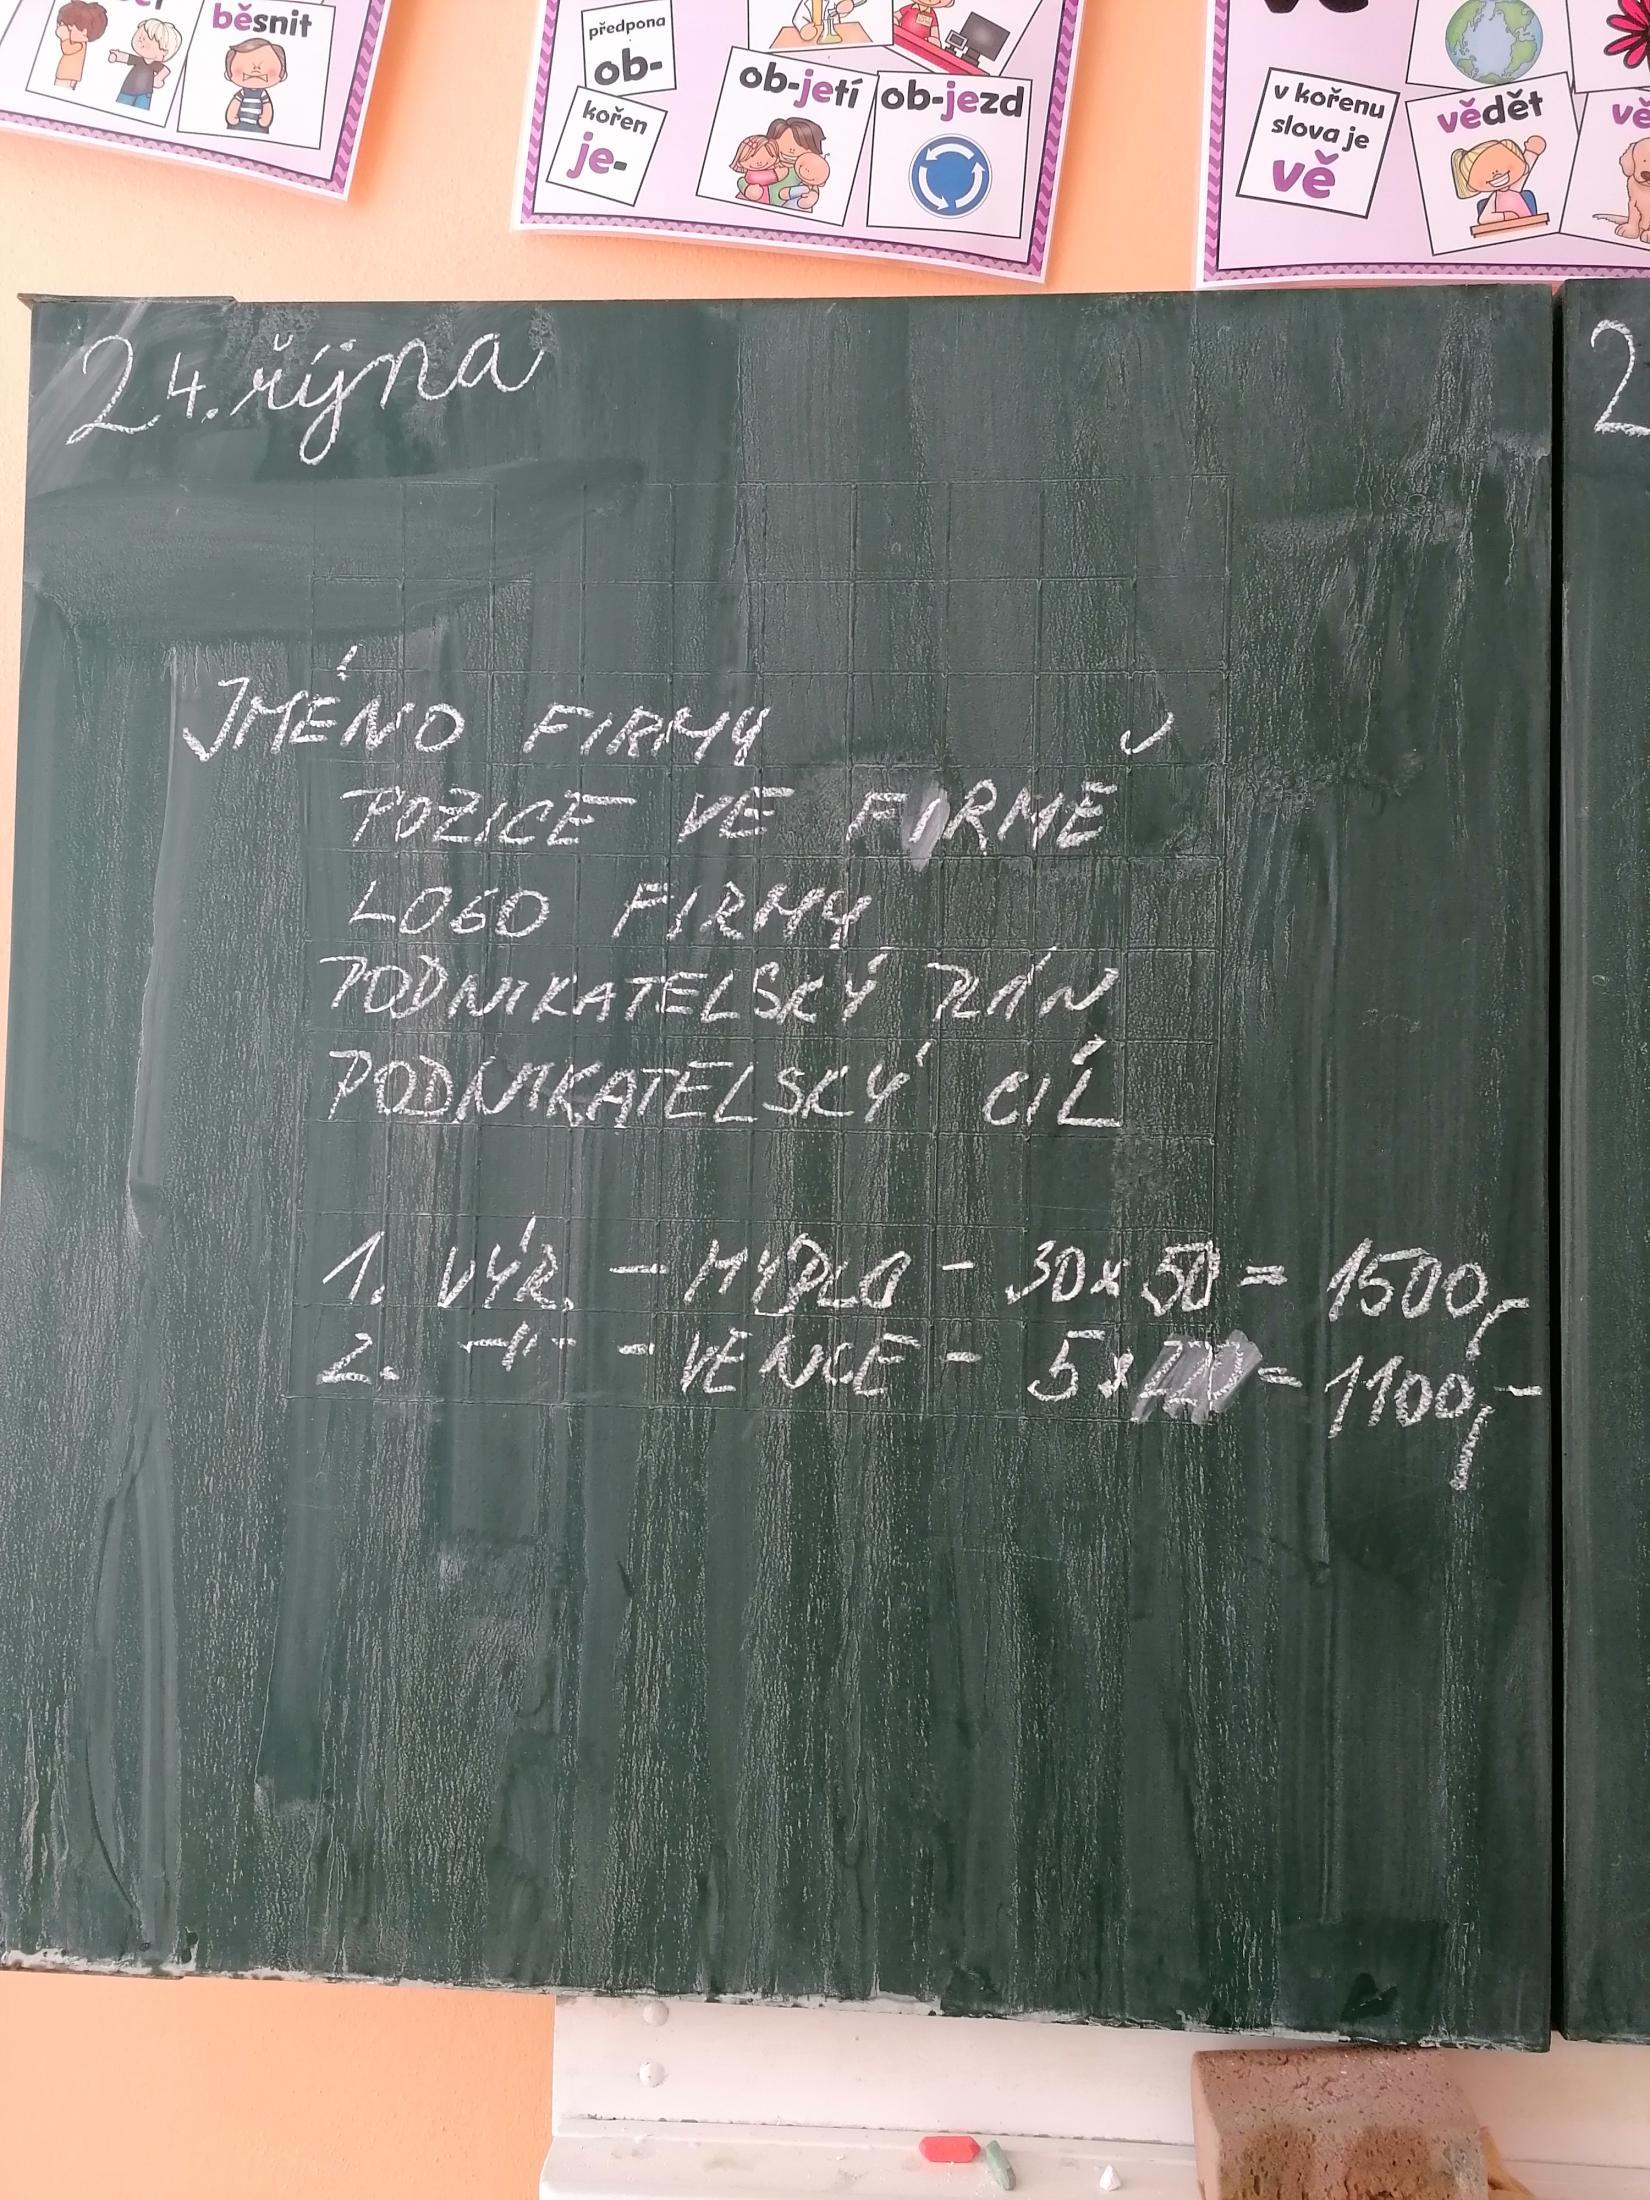 běsnit
předpona
ob-
kořen
je-
ob-jetí
ob-jezd
v kořenu
slova je
vě
vědět
vě
24. října
JMÉNO FIRMY
POZICE VE FIRMĚ
LOGO FIRMY
PODNIKATELSKÝ PLÁN
PODNIKATELSKÝ CÍL
1. VÝR. – MÝDLO – 30x50 = 1500,-
2. –"– – VĚNCE – 5x220 = 1100,-
2